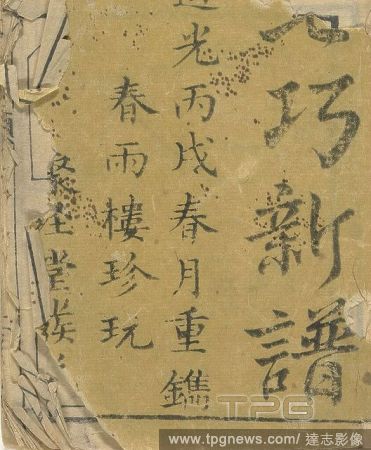 巧新譜
光丙戌春月重鐫
春雨樓珍玩
堂
TPG
www.tpgnews.com/ 達志影像